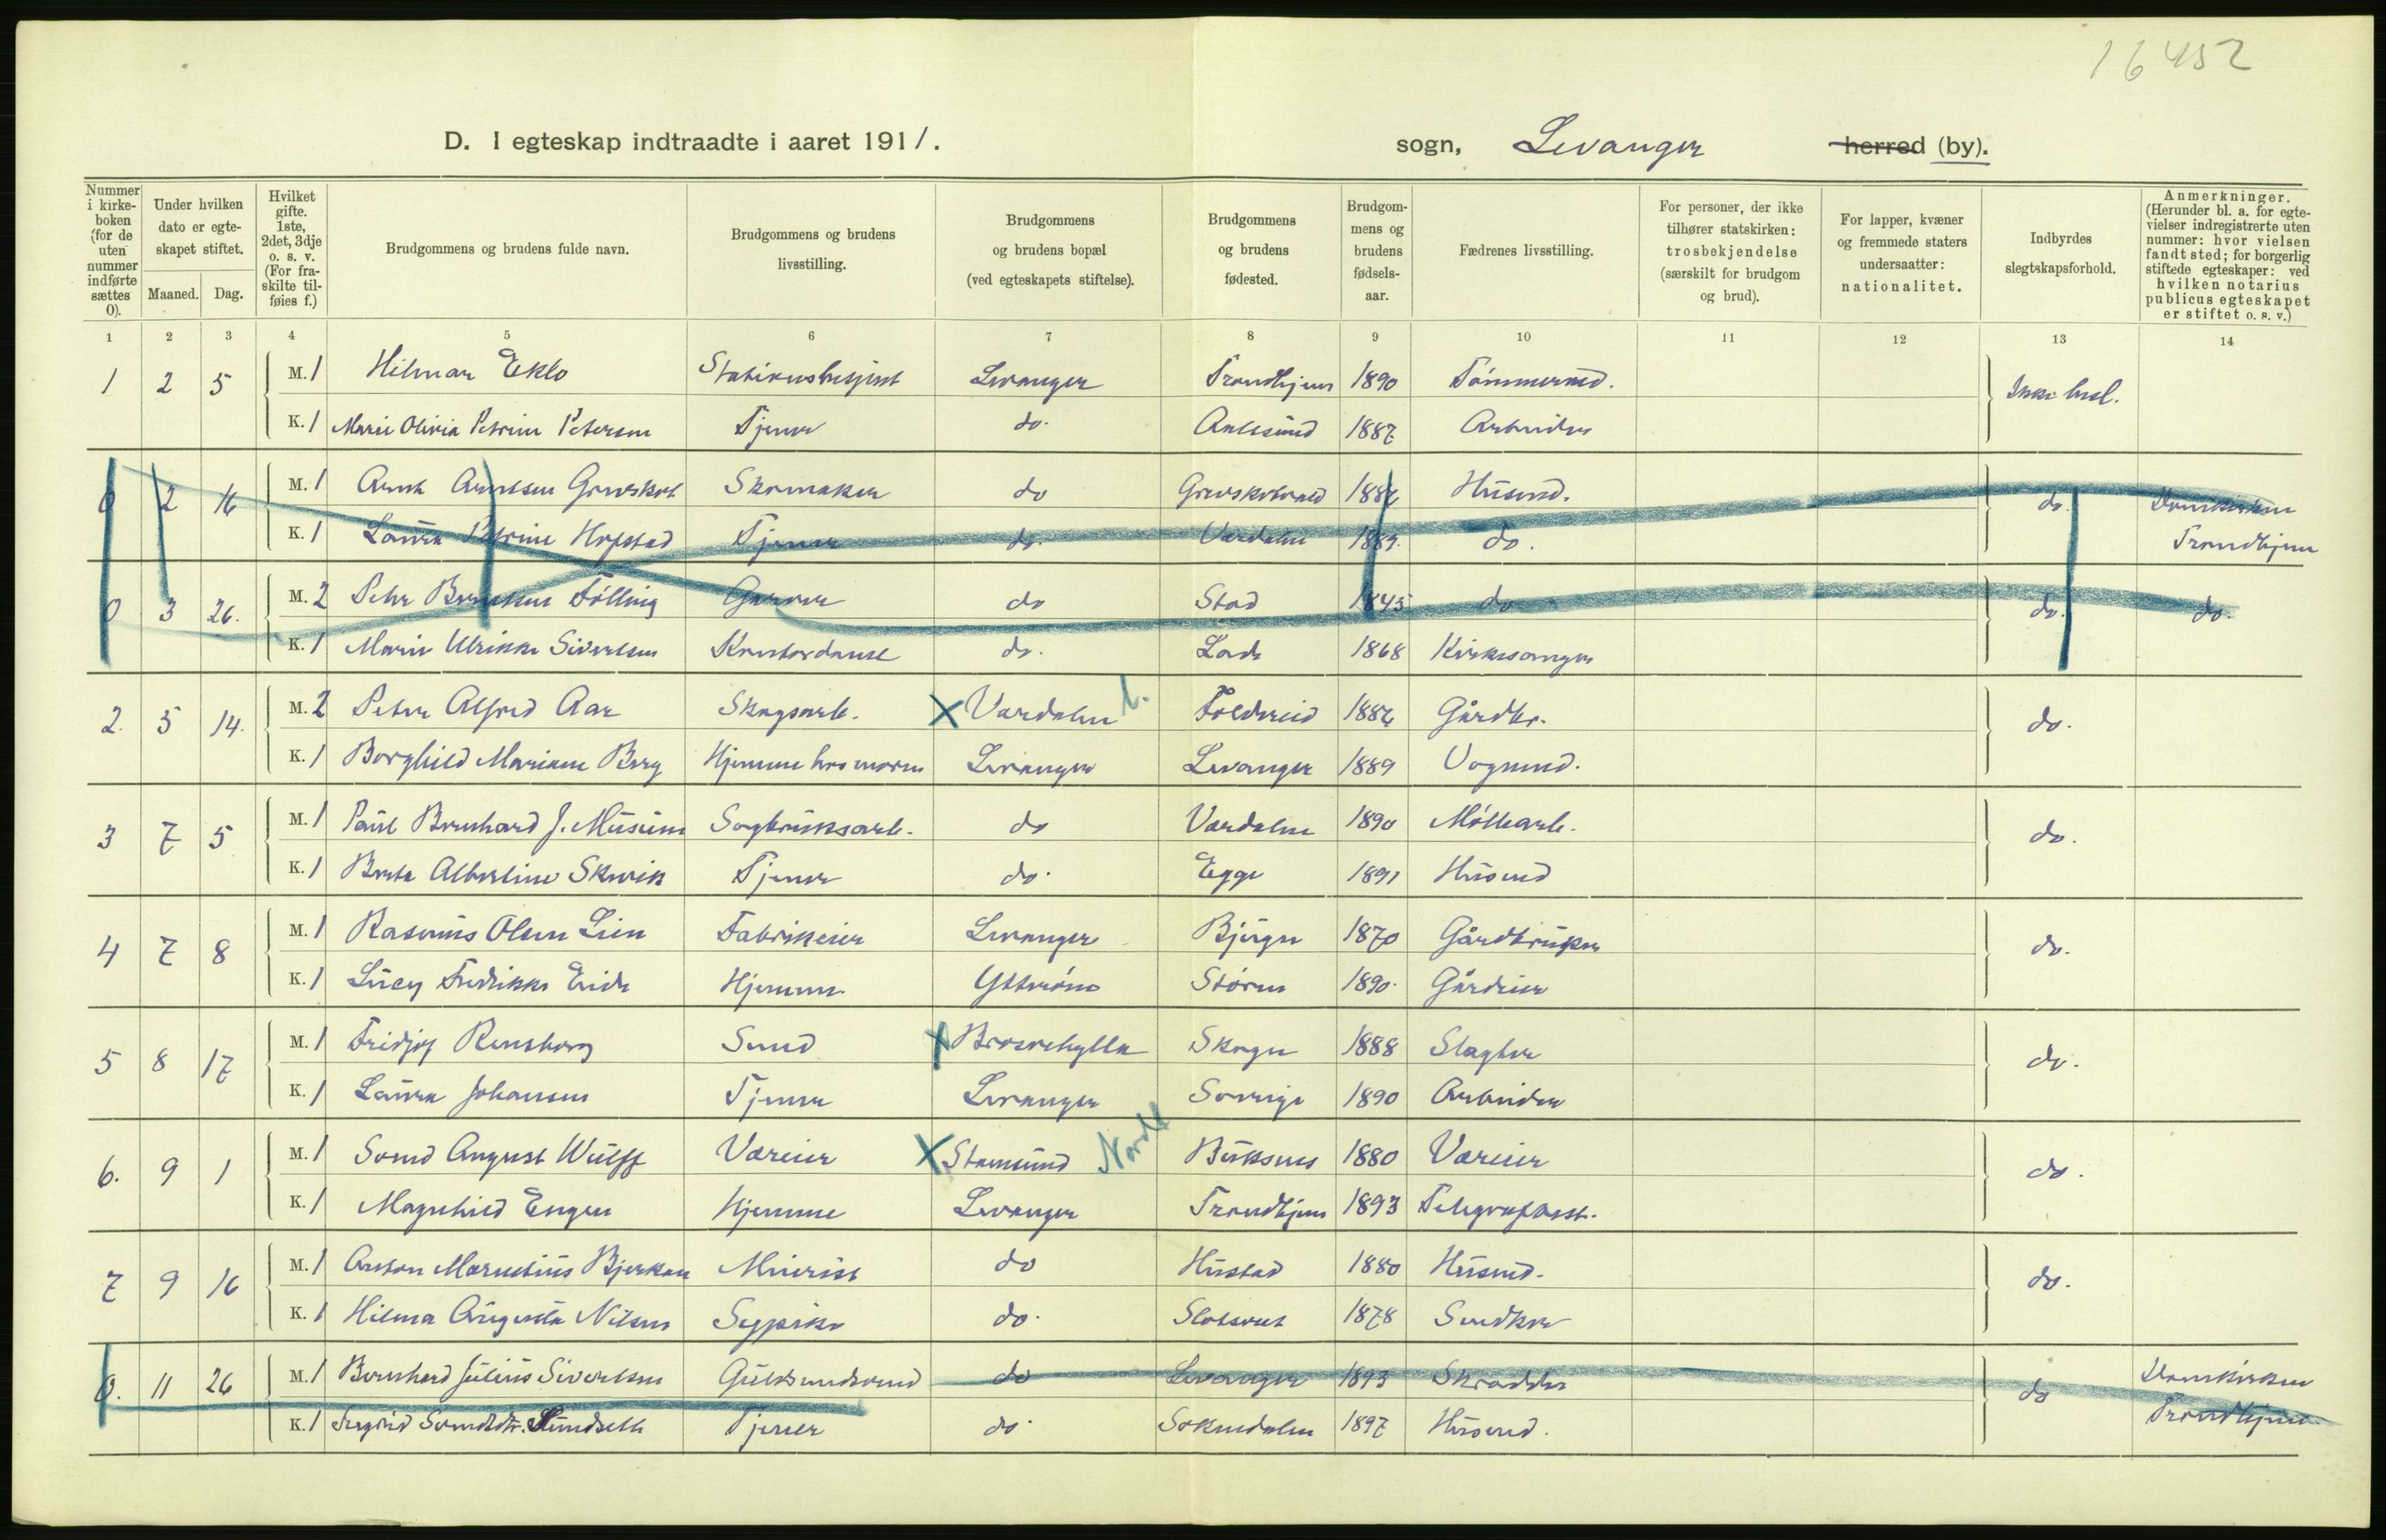 16452
D. I egteskap indtraadte i aaret 1911.
sogn, Levanger herred (by).
Nummer i kirkeboken (for de uten nummer indførte sættes 0).
Under hvilken dato er egteskapet stiftet.
Maaned. Dag.
Hvilket gifte. 1ste, 2det, 3dje o. s. v. (For fraskilte tilføies f.)
Brudgommens og brudens fulde navn.
Brudgommens og brudens livsstilling.
Brudgommens og brudens bopæl (ved egteskapets stiftelse).
Brudgommens og brudens fødested.
Brudgommens og brudens fødselsaar.
Fædrenes livsstilling.
For personer, der ikke tilhører statskirken: trosbekjendelse (særskilt for brudgom og brud).
For lapper, kvæner og fremmede staters undersaatter: nationalitet.
Indbyrdes slegtskapsforhold.
Anmerkninger. (Herunder bl. a. for egtevielser indregistrerte uten nummer: hvor vielsen fandt sted; for borgerlig stiftede egteskaper: ved hvilken notarius publicus egteskapet er stiftet o. s. v.)
1 2 3 4 5 6 7 8 9 10 11 12 13 14
1 2 5 M. 1 Hilmar Eklo Stationsbetjent Levanger Trondhjem 1890 Tømmermd. Ikke besl.
K. 1 Marie Olivia Petrine Petersen Tjener do. Aalesund 1887 Arbeider
0 2 16 M. 1 Arnt Arntsen Skomaker do 188 Husmd. do. Domkirken
K. 1 Laura Petrine Hopstad Tjener do. Værdalen 1889. do. Trondhjem
0 3 26. M. 2 Peter Følling Garver do Stod 1845 do do. do.
K. 1 Marie Ulrikke Sivertsen do. Lade 1868 Kirkesanger
2. 5 14. M. 2 Peter Alfred Aar Skogsarb. X Værdalen Foldereid 188 Gårdbr. do.
K. 1 Borghild Mariane Berg Hjemme hos moren Levanger Levanger 1889 Vognmd.
3 7 5 M. 1 Paul Bernhard J. Musum Sagbruksarb. do Værdalen 1890 Møllearb. do.
K. 1 Berta Albertine Skjervik Tjener do. Egge 1891 Husmd
4 7 8 M. 1 Rasmus Olsen Lien Fabrikeier Levanger Bjugn 1870 Gårdbruker do.
K. 1 Lucy Fredrikke Eide Hjemme Ytterøen Støren 1890. Gårdeier
5 8 17 M. 1 Fridjof Rensberg Smed X Skogn 1888 Slagter do.
K. 1 Laura Johansen Tjener Levanger Sverige 1890 Arbeider
6. 9 1 M. 1 Svend August Wulff Væreier X Stamsund Nordl Buksnes 1880 Væreier do.
K. 1 Magnhild Engen Hjemme Levanger Trondhjem 1893 Telegrafasst.
7 9 16 M. 1 Anton Marentius Bjerkan Meierist do Hustad 1880 Husmd. do.
K. 1 Hilma Augusta Nilsen Sypike do. 1878 Snedker
0. 11 26 M. 1 Bernhard Julius Sivertsen Guldsmedsvend do Levanger 1893 Skrædder do Domkirken
K. 1 Sundseth Tjener do. Soknedalen 1897 Husmd. Trondhjem